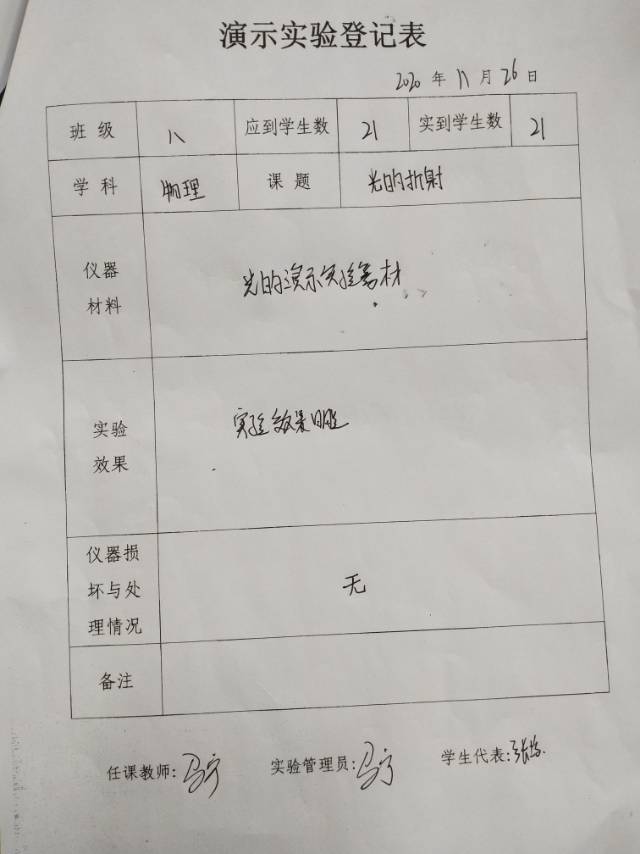 演示实验登记表
2020 年 11 月 26 日
班 级 八 应到学生数 21 实到学生数 21
学 科 物理 课 题 光的折射
仪器
材料
光的演示实验器材
实验
效果
实验效果明显
仪器损
坏与处
理情况
无
备注
任课教师: 马宁 实验管理员: 马宁 学生代表: